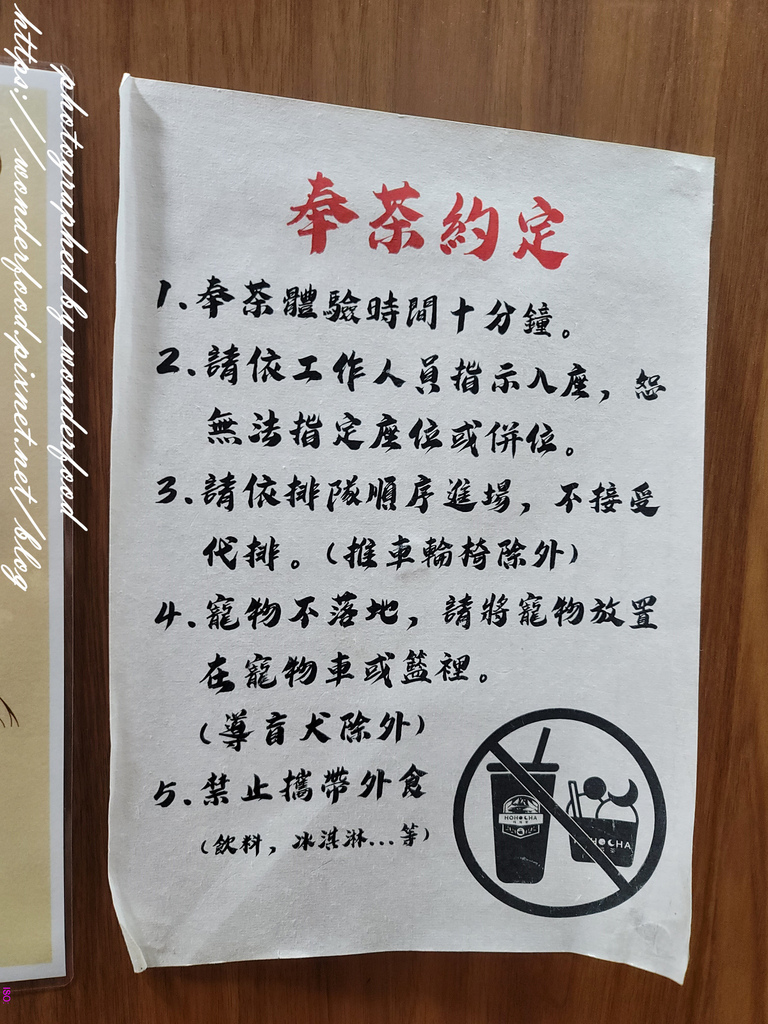 奉茶約定
1.奉茶體驗時間十分鐘。
2.請依工作人員指示入座，恕
無法指定座位或併位。
3.請依排隊順序進場，不接受
代排。(推車輪椅除外)
4.寵物不落地，請將寵物放置
在寵物車或籃裡。
(導盲犬除外)
5.禁止攜帶外食
(飲料，冰淇淋...等)
HOHOCHA
HOHOCHA
photographed by wonderfood
https://wonderfood.pixnet.net/blog
ISO